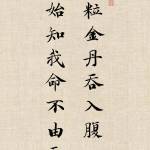 粒金丹吞入腹
始知我命不由